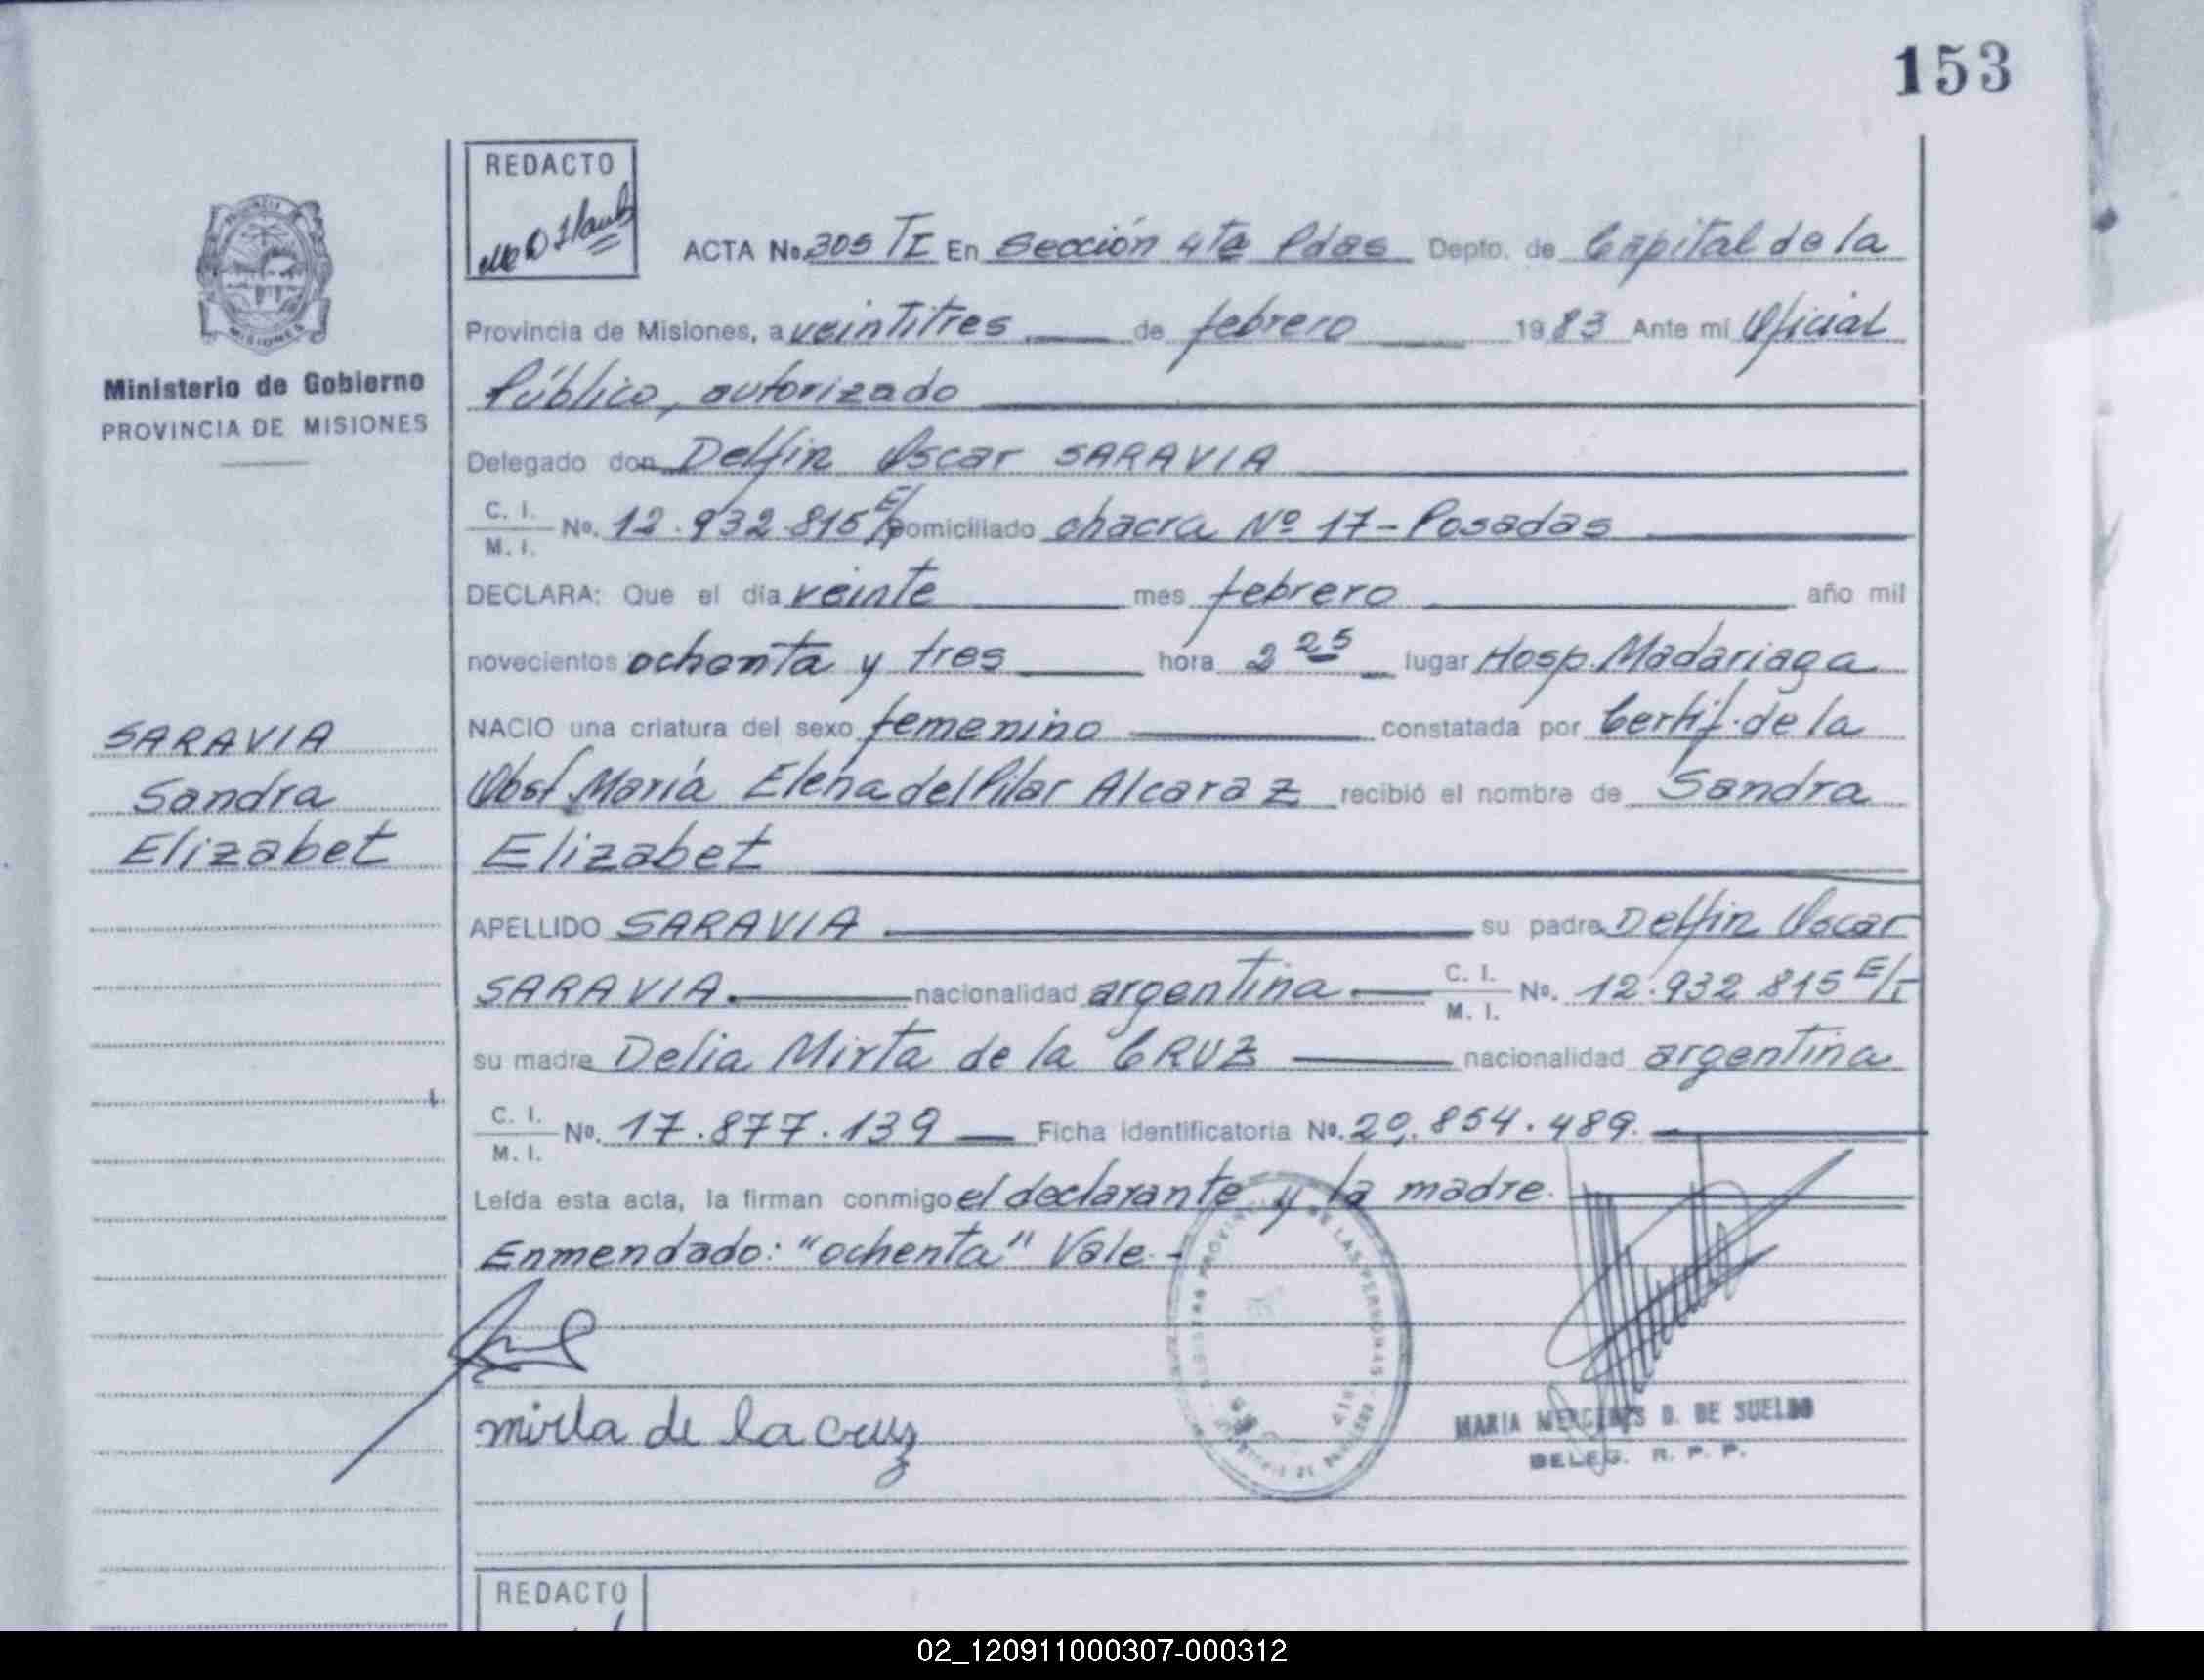 153
REDACTO
ACTA No. 305 TI En Sección 4ta Pdas Depto. de Capital de la
Provincia de Misiones, a veintitres de febrero 1983 Ante mi Oficial
Público, autorizado
Delegado don Delfin Oscar SARAVIA
C. I.
M. I. No. 12.932.815 E/T Domiciliado chacra Nº 17 - Posadas
DECLARA: Que el día veinte mes febrero año mil
novecientos ochenta y tres hora 2 25 lugar Hosp. Madariaga
NACIO una criatura del sexo femenino constatada por Certif. de la
Obst María Elena del Pilar Alcaraz recibió el nombre de Sandra
Elizabet
APELLIDO SARAVIA su padre Delfin Oscar
SARAVIA. nacionalidad argentina C. I.
M. I. No. 12.932.815 E/T
su madre Delia Mirta de la CRUZ nacionalidad argentina
C. I.
M. I. No. 17.877.139 Ficha identificatoria No. 29.854.489.
Leída esta acta, la firman conmigo el declarante y la madre.
Enmendado: "ochenta" Vale.-
mirta de la cruz
MARIA MERCEDES D. DE SUELDO
DELEG. R. P. P.
PROVINCIA DE
MISIONES
Ministerio de Gobierno
PROVINCIA DE MISIONES
SARAVIA
Sandra
Elizabet
REDACTO
02_120911000307-000312